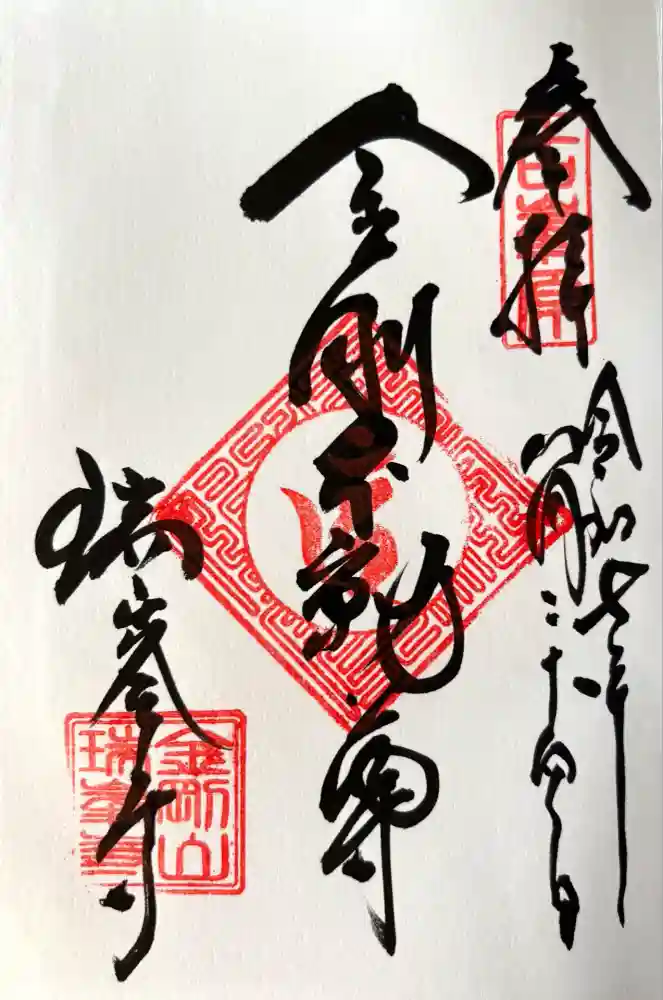 奉拝
令和七年
八月二十四日
金剛不動尊
瑞峯寺
金剛山
瑞峯寺